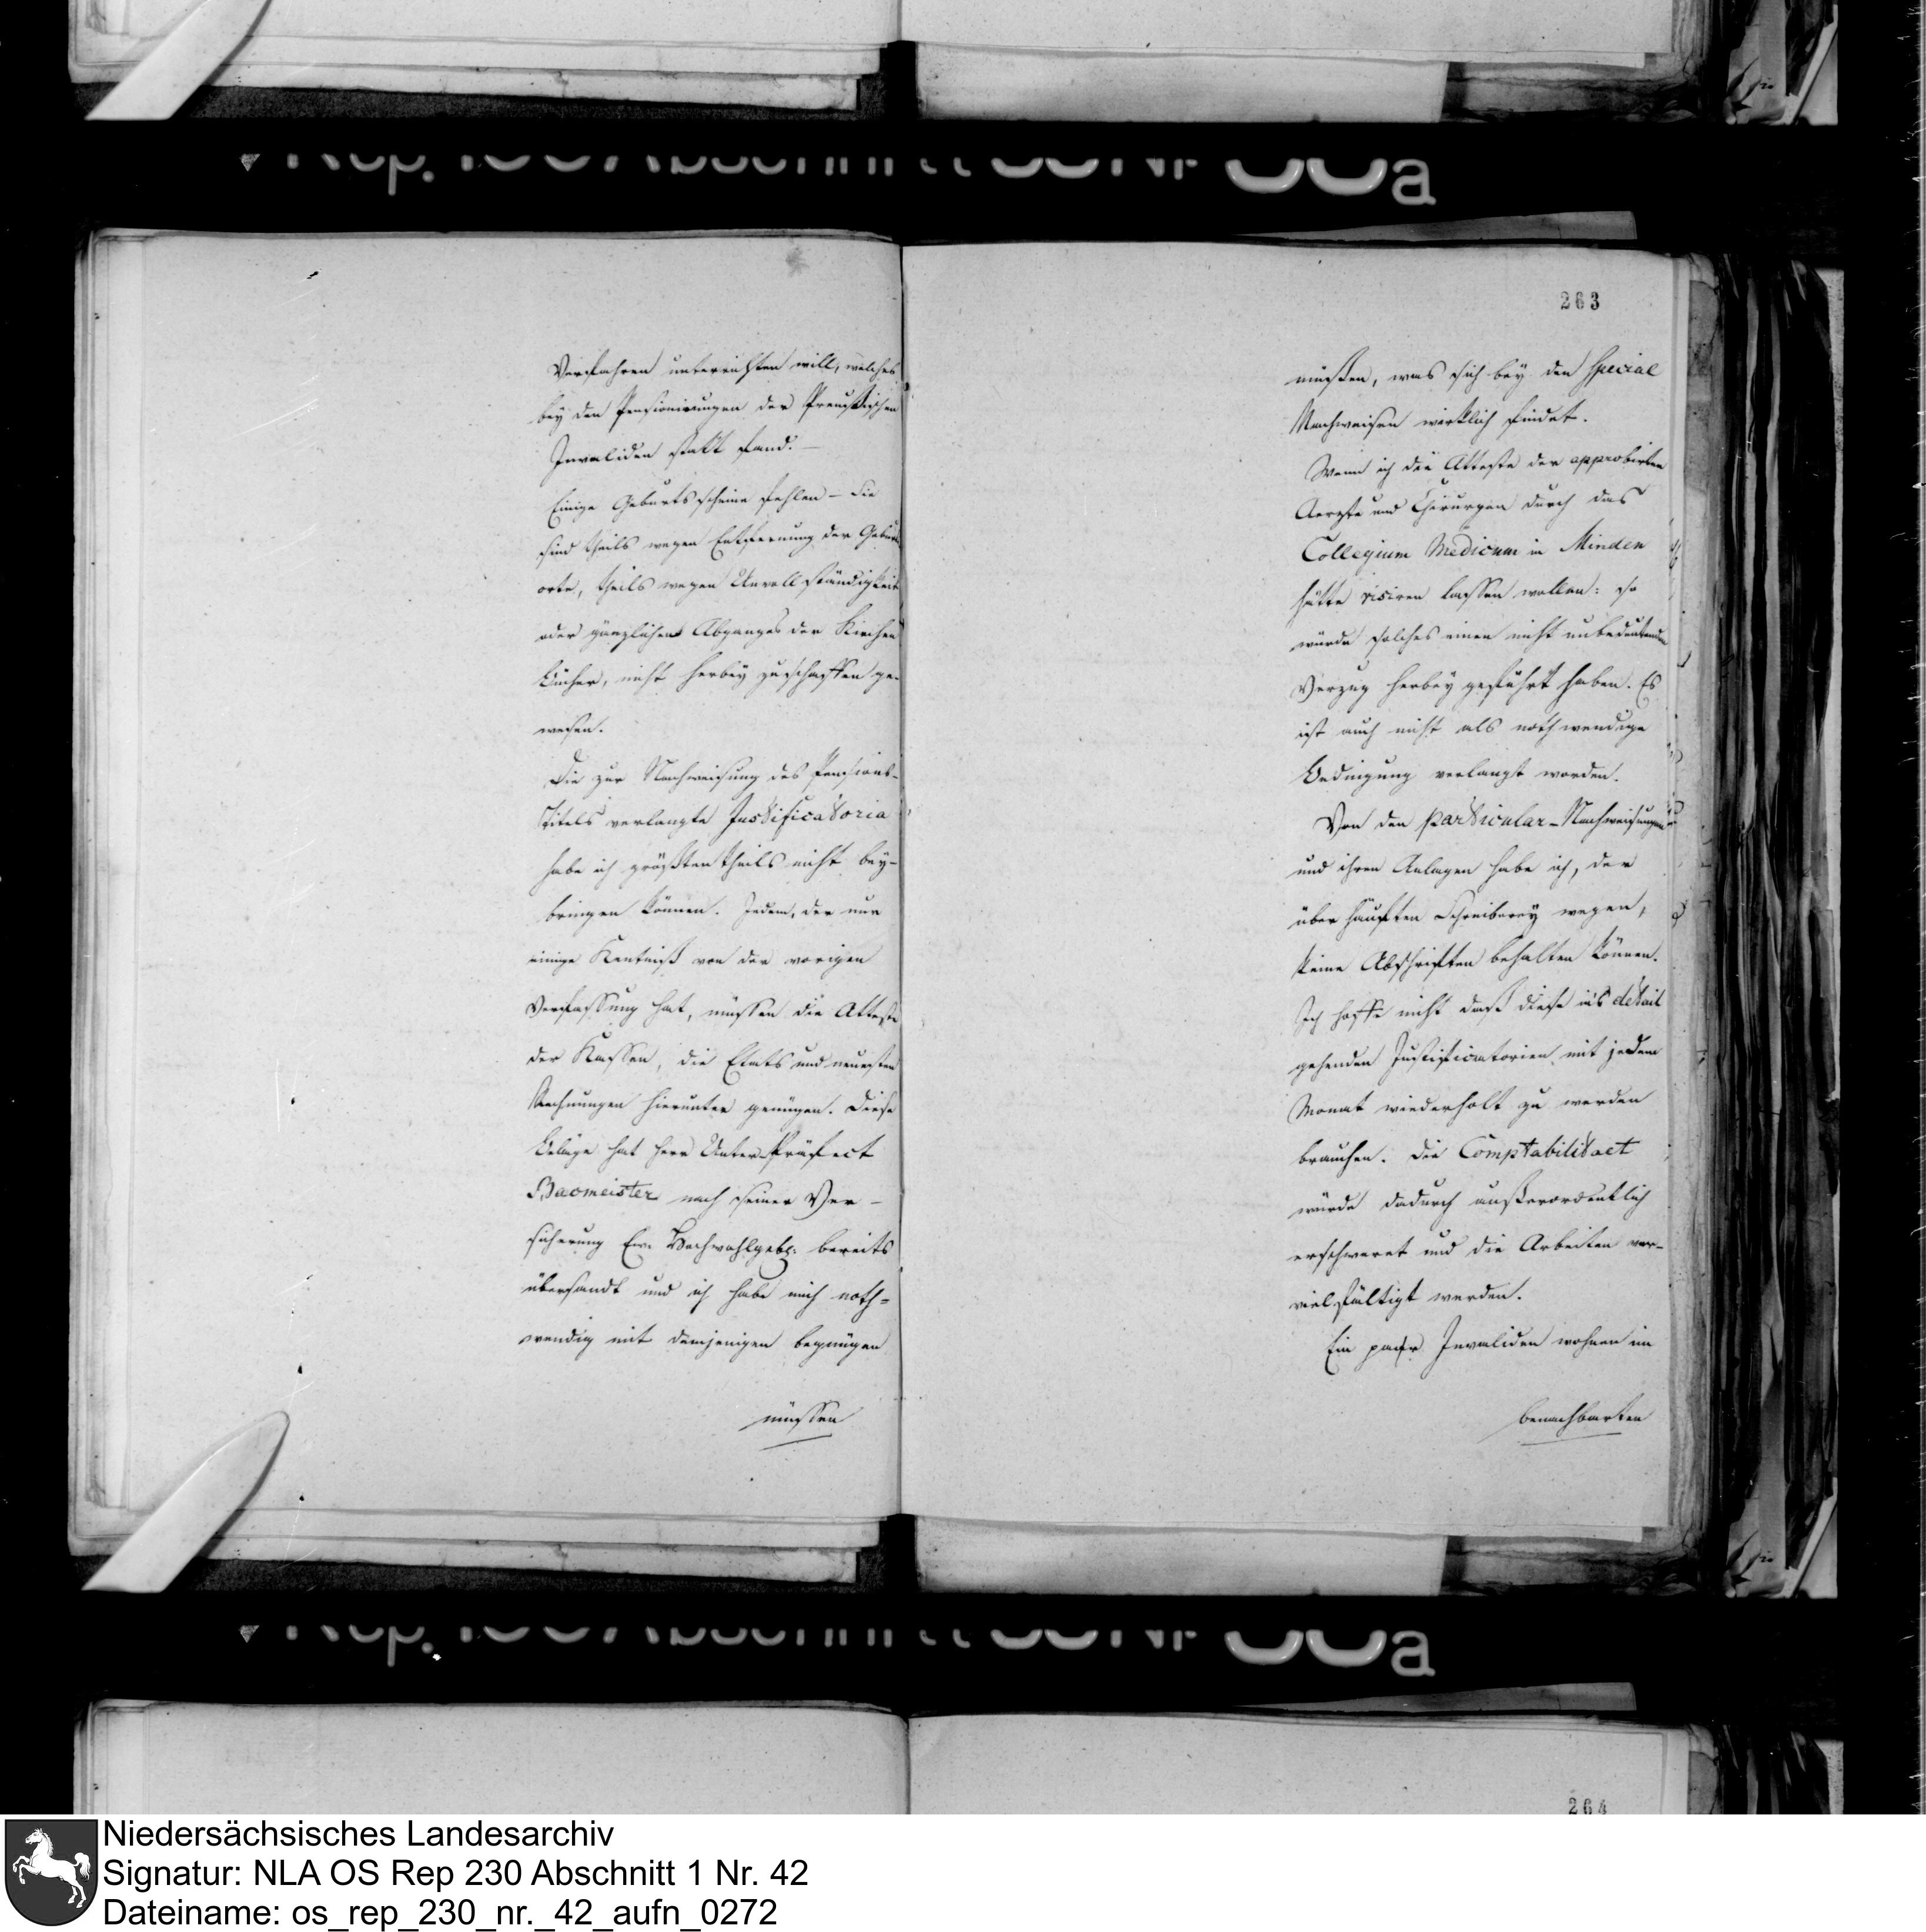 Verfahren unterrichten will, welches
bey den Pensionirungen der Preussischen
Invaliden statt fand. —
Einige Geburtsscheine fehlen — die
sind theils wegen Entfernung der Geburts
orte, theils wegen Unvollständigkeit
oder gänzlichen Abganges der Kirchen
bücher, nicht herbey zuschaffen ge-
wesen.
Die zur Nachweisung des Pensions-
Titels verlangte Justificatoria
habe ich größtentheils nicht bey-
bringen können. Jedem, der nur
einige Kentniß von der vorigen
Verfassung hat, müssen die Atteste
der Kassen, die Etats und neuesten
Rechnungen hierunter genügen. Diese
Beläge hat Herr Unter-Präfect
Bacmeister nach seiner Ver-
sicherung Ew. Hochwohlgeb: bereits
übersandt und ich habe mich noth=
wendig mit demjenigen begnügen
müssen
263
müßen, was sich bey den Special
Nachweisen wirklich findet.
Wenn ich die Atteste der approbirten
Aerzte und Chirurgen durch das
Collegium Medicum in Minden
hätte visiren lassen wollen: so
würde solches einen nicht unbedeutenden
Verzug herbey geführt haben. Es
ist auch nicht als nothwendige
Bedingung verlangt worden.
Von den particular-Nachweisungen
und ihren Anlagen habe ich, der
überhäuften Schreiberey wegen,
keine Abschriften behalten können.
Ich hoffe nicht daß diese in's detail
gehenden Justificatorien mit jedem
Monat wiederholt zu werden
brauchen. Die Comptabilitaet
würde dadurch außerordentlich
erschweret und die Arbeiten ver-
vielfältigt werden.
Ein paar Invaliden wohnen im
benachbarten
264
Niedersächsisches Landesarchiv
Signatur: NLA OS Rep 230 Abschnitt 1 Nr. 42
Dateiname: os_rep_230_nr._42_aufn_0272